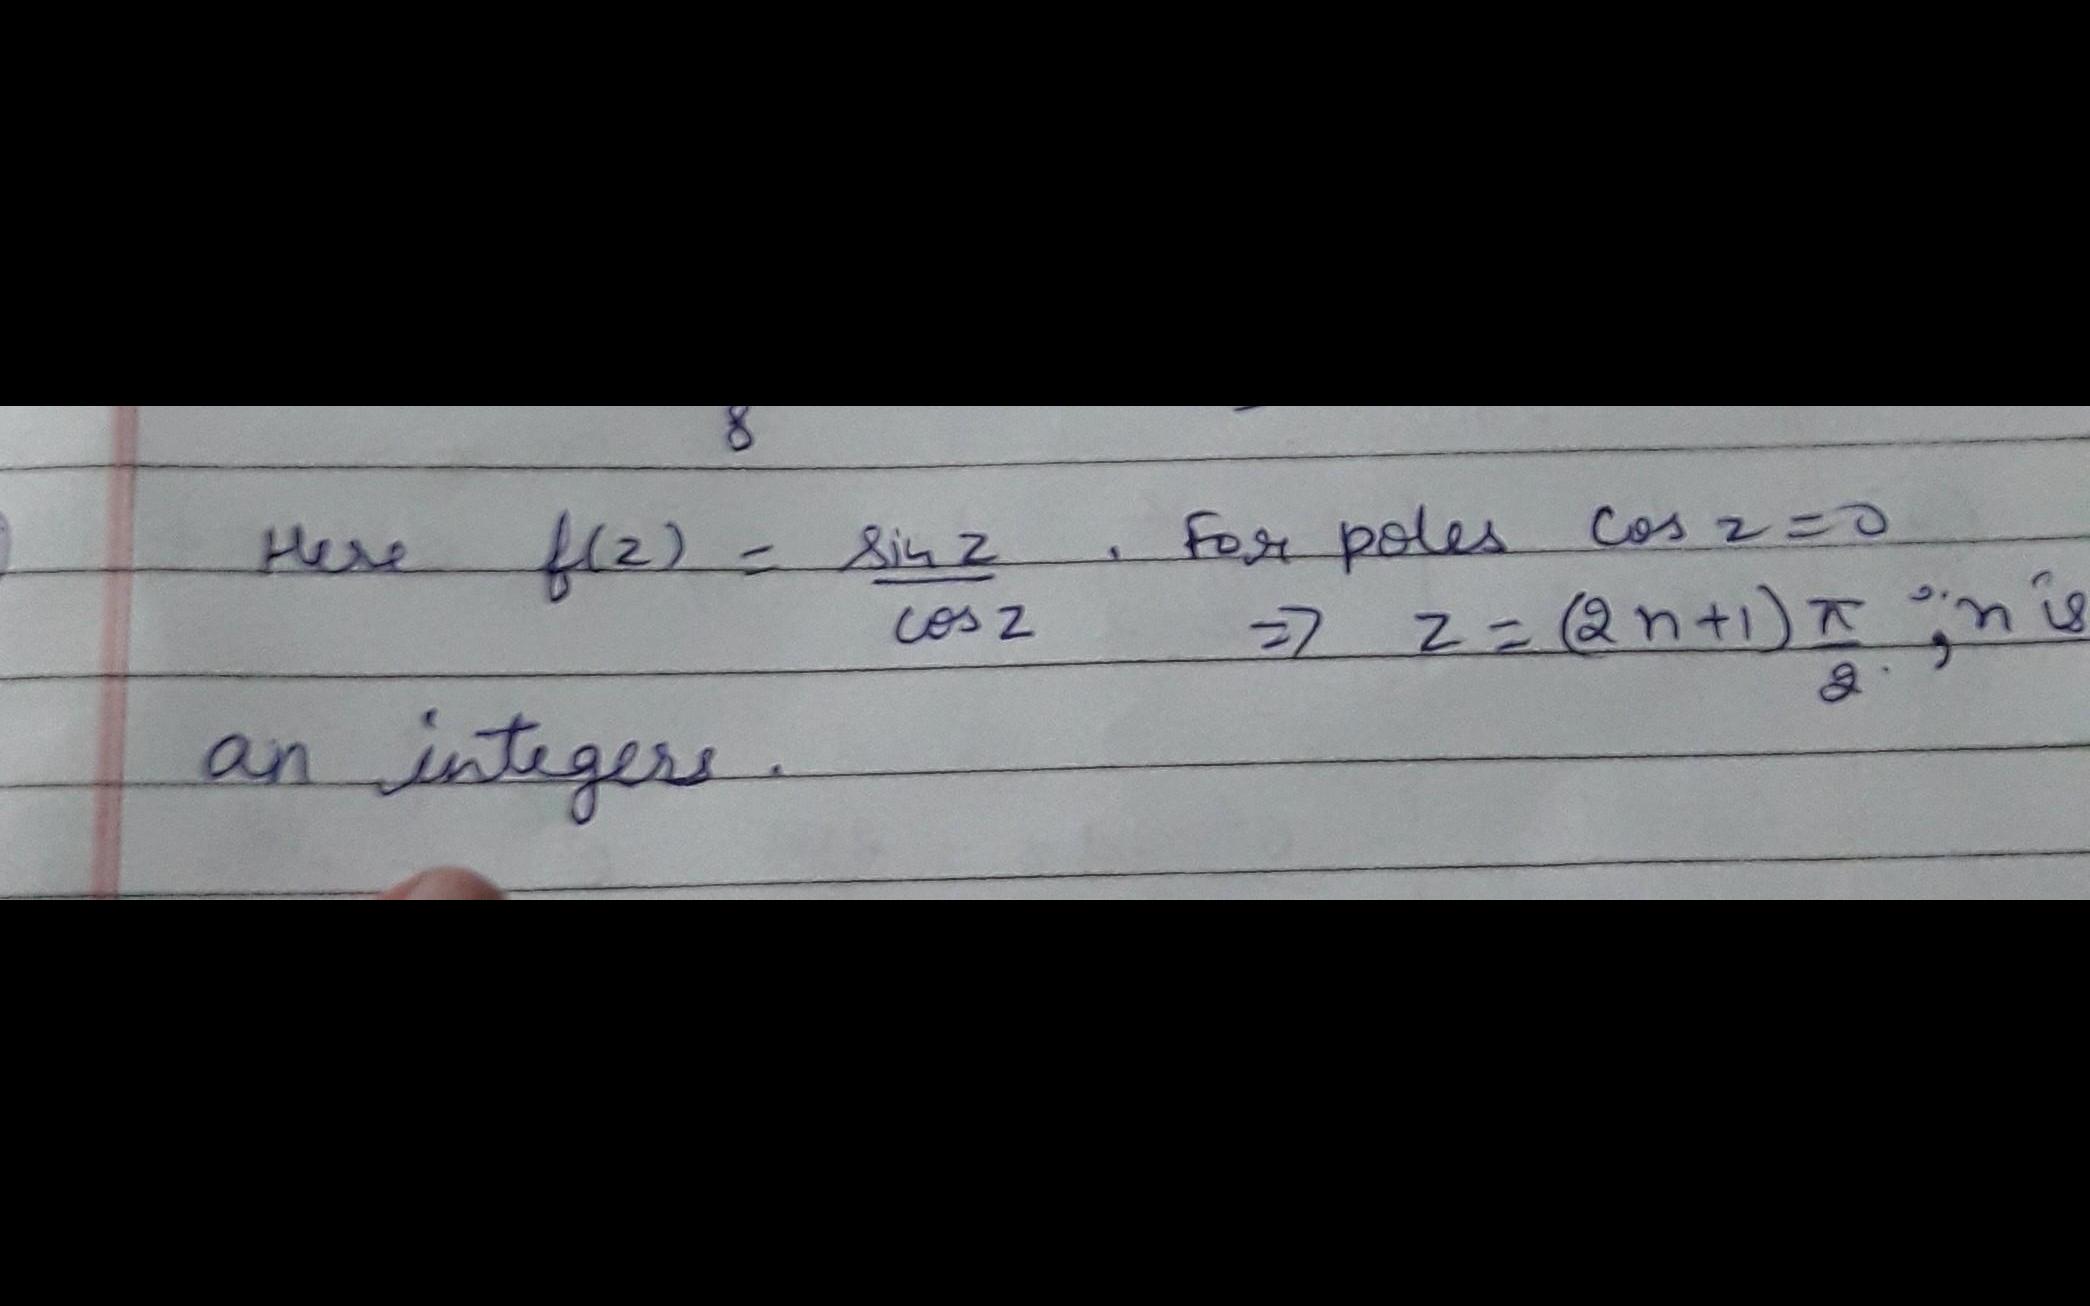 8
Here f(z) = sin z / cos z . For poles cos z = 0
⇒ z = (2n+1) π/2 ; n is
an integers.